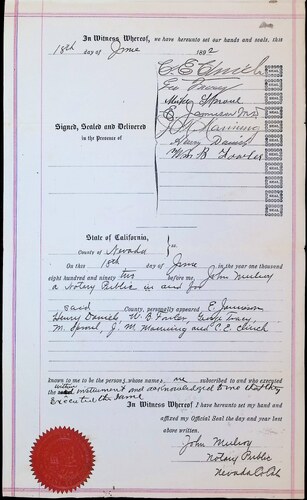 In Witness Whereof, we have hereunto set our hands and seals, this
18th day of June 1892
C. E. Church
Geo Tracy
Mikey Sproul
E. Jamison
J. M. Manning
Henry Daniels
Wm B. Fowler
Signed, Sealed and Delivered
in the Presence of
State of California,
County of Nevada } ss.
On this 18th day of June in the year one thousand
eight hundred and ninety two before me, John Mulroy
a Notary Public in and for
said County, personally appeared E. Jamison
Henry Daniels, W. B. Fowler, George Tracy,
M. Sproul, J. M. Manning and C. E. Church
known to me to be the persons whose names are subscribed to and who executed
the within instrument and acknowledged to me that they
executed the same
In Witness Whereof I have hereunto set my hand and
affixed my Official Seal the day and year last
above written.
John Mulroy
Notary Public
Nevada Co Cal